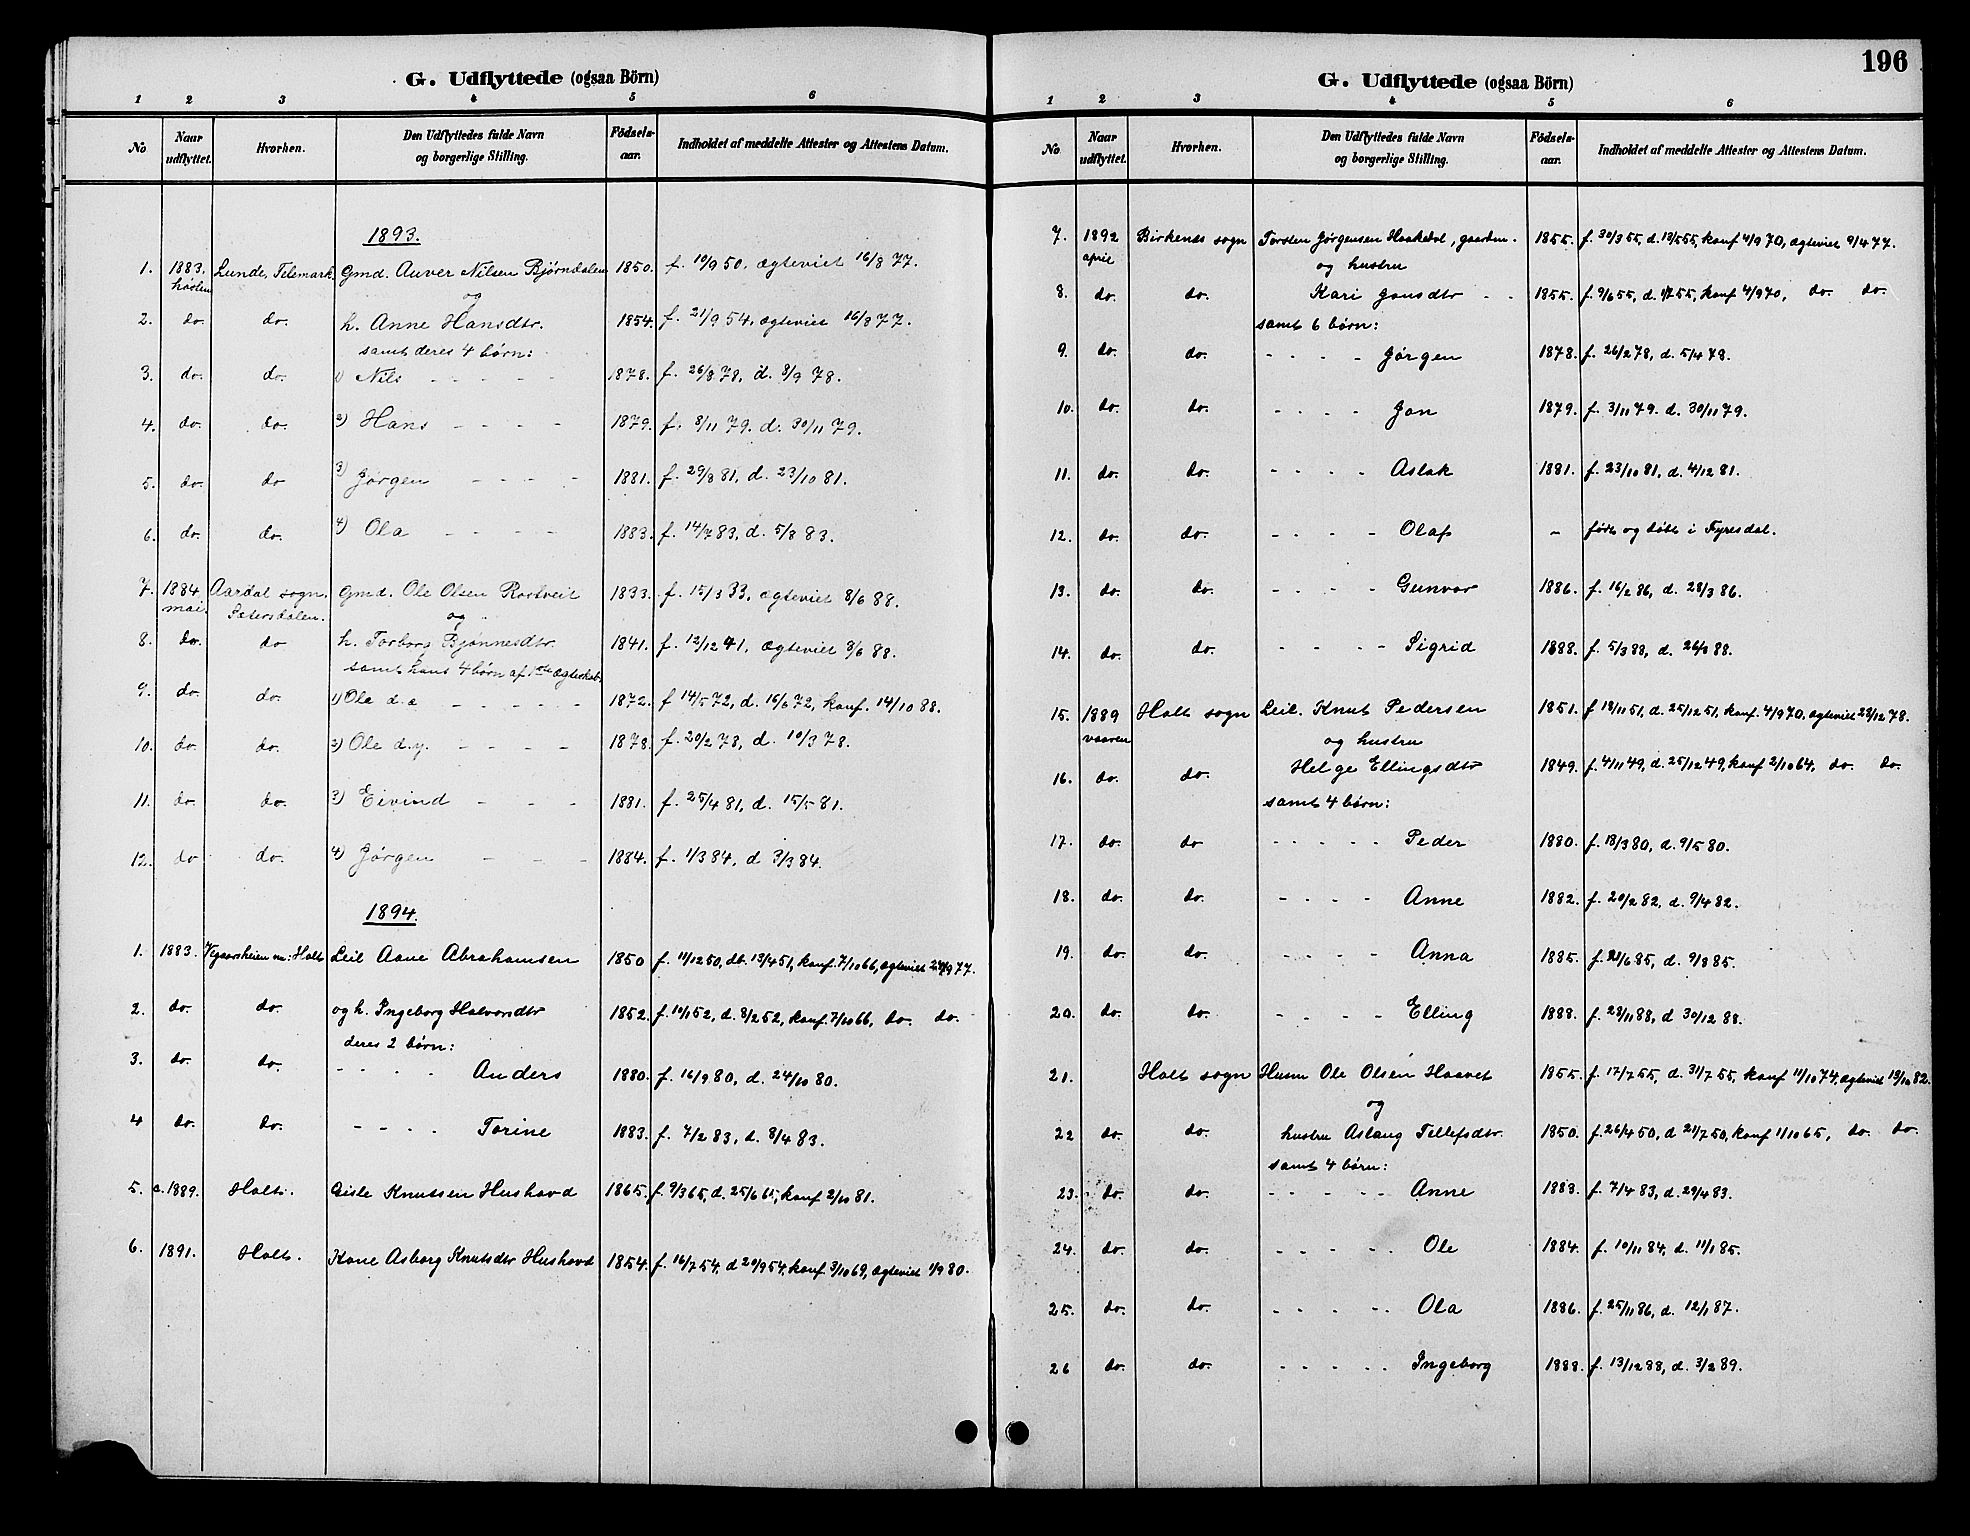 G. Udflyttede (ogsaa Börn)
1 2 3 4 5 6
No Naar udflyttet. Hvorhen. Den Udflyttedes fulde Navn og borgerlige Stilling. Födsels-aar. Indholdet af meddelte Attester og Attestens Datum.
1893.
1. 1883. høsten Lunde, Telemark Gmd. Auver Nilsen Bjørndalen 1850. f. 10/9 50. ægteviet 16/8 77.
og
2. do. do. h. Anne Hansdtr. 1854. f. 21/9 54. ægteviet 16/8 77.
samt deres 4 børn:
3. do. do. 1) Nils - - - - - 1878. f. 26/8 78, d. 8/9 78.
4. do. do. 2) Hans - - - - 1879. f. 8/11 79. d. 30/11 79.
5. do. do 3) Jørgen - - - - 1881. f. 29/8 81, d. 23/10 81.
6. do. do. 4) Ola - - - - 1883. f. 14/7 83, d. 5/8 83.
7. 1884. mai Aardal sogn, Sætersdalen. Gmd. Ole Olsen Rostveit 1833. f. 15/3 33, ægteviet 8/6 88.
og
8. do. do h. Torborg Bjønnesdtr. 1841. f. 12/12 41, ægteviet 8/6 88.
samt hans 4 børn af 1ste ægteskab.
9. do do. 1) Ole d.e - - - - - 1872. f 14/5 72, d. 16/6 72, konf. 14/10 88.
10. do. do. 2) Ole d.y. - - - - 1878. f. 20/2 78, d. 10/3 78.
11. do. do. 3) Eivind - - - 1881. f. 25/4 81, d. 15/5 81.
12. do do. 4) Jørgen - - - 1884. f. 1/3 84, d 3/3 84.
1894.
1. 1883. Vegaarsheien m: Holt Leil Aane Abrahamsen 1850 f. 11/12 50, db. 13/4 51, konf. 7/10 66, ægteviet 77.
2. do. do. og h. Ingeborg Halvorsdtr 1852. f. 10/1 52, d. 8/2 52, konf. 7/10 66, do. do.
deres 2 børn:
3. do. do. - - - - Anders 1880. f. 16/9 80, d. 24/10 80.
4 do. do. - - - - Torine 1883. f. 7/2 83, d. 8/4 83.
5. c. 1889. Holt. Gisle Knutsen Hushovd 1865. f. 9/3 65, d. 25/6 65, konf 2/10 81.
6. 1891. Holt. Kone Asborg Knutsdtr Hushovd 1854. f. 16/7 54, d 20/9 54, konf 3/10 69, ægteviet 1/9 80.
196
G. Udflyttede (ogsaa Börn)
1 2 3 4 5 6
No Naar udflyttet. Hvorhen. Den Udflyttedes fulde Navn og borgerlige Stilling. Födsels-aar. Indholdet af meddelte Attester og Attestens Datum.
7. 1892 april Birkenes sogn Torsten Jørgensen Haakedal, gaardm. 1855. f. 30/3 55, d. 13/5 55, konf 4/9 70, ægteviet 9/4 77.
og hustru
8. do. do. Kari Jonsdtr - - 1855. f. 9/6 55, d. 55, konf 4/9 70, do. do.
samt 6 børn:
9. do. do. - - - - Jørgen 1878. f. 26/2 78, d. 5/4 78.
10. do. do. - - - - Jon 1879. f. 3/11 79. d. 30/11 79.
11. do. do. - - - - Aslak 1881. f. 23/10 81, d. 4/12 81.
12. do. do. - - - - Olaf - født og døbt i Fyresdal.
13. do. do. - - - - Gunvor 1886. f. 16/2 86, d. 28/3 86.
14. do. do. - - - - Sigrid 1888. f. 5/3 88, d. 88.
15. 1889 vaaren Holt sogn Leil. Knut Pedersen 1851. f 13/11 51, d. 25/12 51, konf. 4/9 70, ægteviet 28/12 78.
og hustru
16. do. do. Helge Ellingsdtr 1849. f. 4/11 49, d. 25/12 49, konf 2/10 64, do. do.
samt 4 børn:
17. do. do - - - - - Peder 1880. f. 18/3 80, d. 9/5 80.
18. do. do. - - - - Anne 1882. f. 20/2 82, d. 9/4 82.
19. do. do. - - - - Anna 1885. f. 21/6 85, d. 9/8 85.
20. do. do. - - - - Elling 1888. f. 28/11 88, d 30/12 88.
21. Holt sogn Husm Ole Olsen Haavet 1855. f. 17/7 55, d. 31/7 55, konf 11/10 74, ægteviet 13/10 82.
og
22 do. do. hustru Aslaug Tellefsdtr. 1850. f. 26/4 50, d 21/7 50, konf 1/10 65, do. do.
samt 4 børn:
23. do. do. - - - - - Anne 1883. f. 7/4 83, d. 29/4 83.
24. do. do. - - - - - Ole 1884. f. 10/11 84, d. 11/1 85.
25. do. do. - - - - - Ola 1886. f. 25/11 86, d. 12/1 87.
26 do. do. - - - - - Ingeborg 1888. f. 13/12 88, d. 3/2 89.